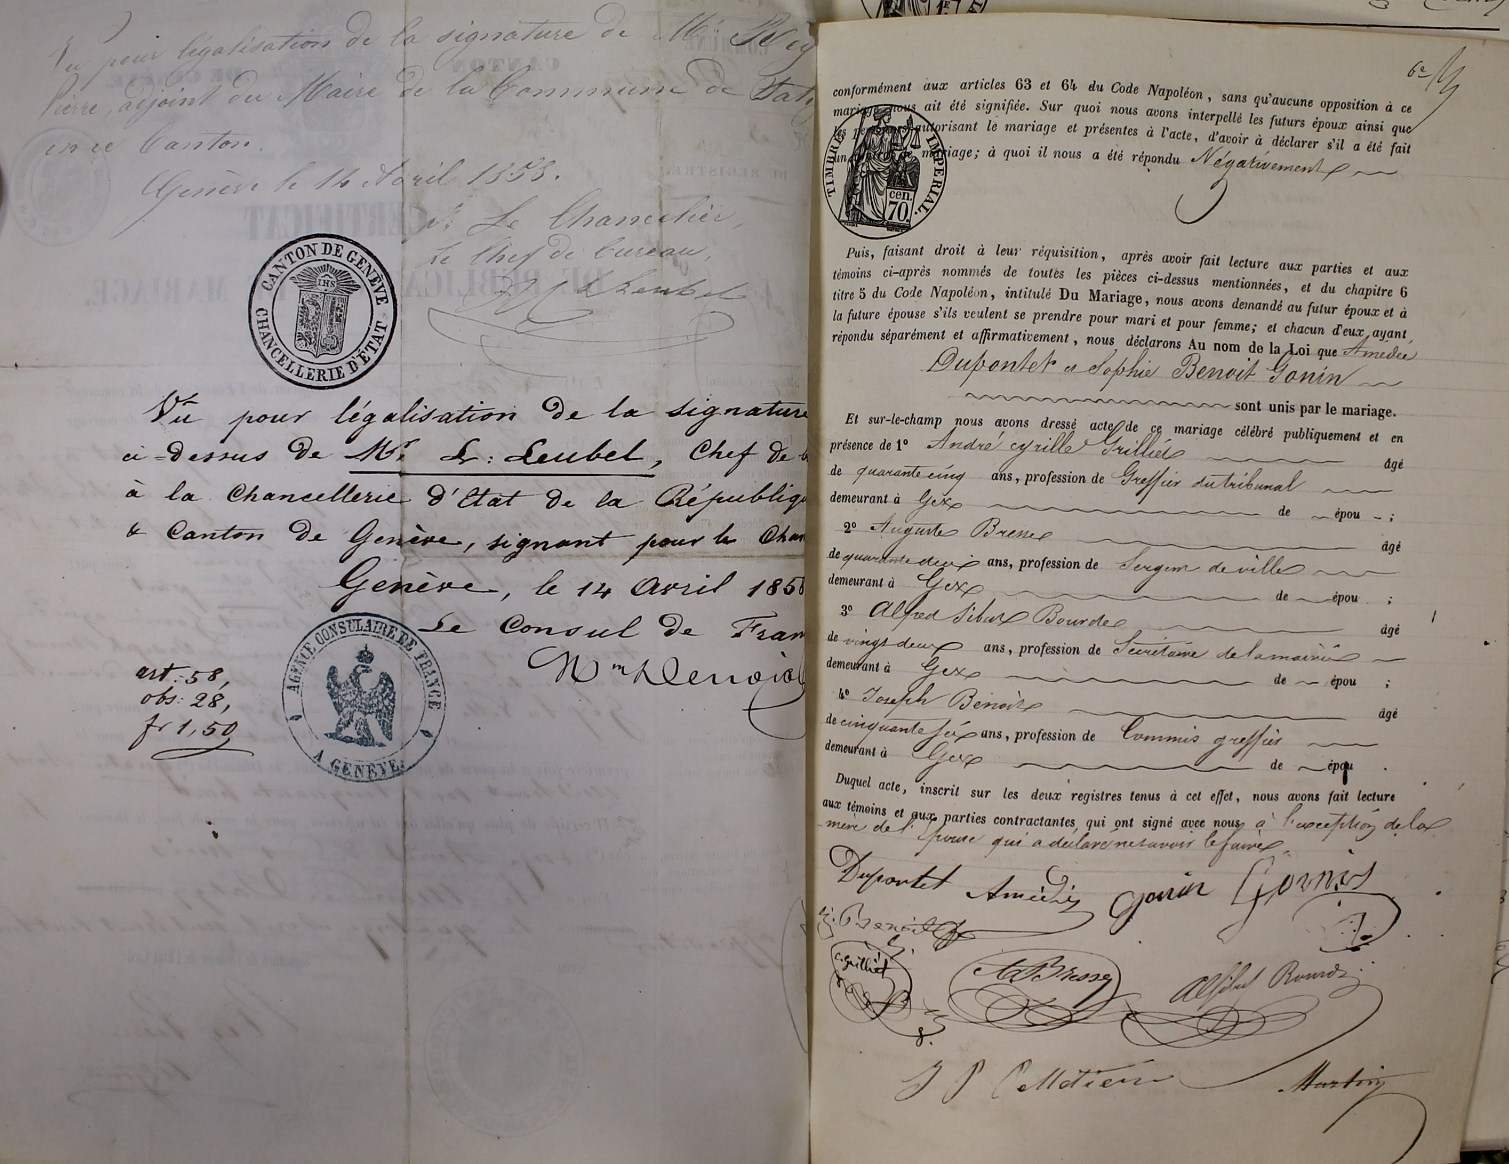 Vu pour légalisation de la signature de Mr
Pierre, adjoint du Maire de la Commune de
en ce Canton.
Genève le 14 Avril 1858.
Le Chancelier,
Le Chef de bureau,
CANTON DE GENÈVE
CHANCELLERIE D'ÉTAT
IHS
Vu pour légalisation de la signature
ci-dessus de Mr. L. Leubel, Chef de b
à la Chancellerie d'Etat de la Républiq
& Canton de Genève, signant pour le Chan
Genève, le 14 avril 1858
Le Consul de Fran
art: 58,
obs: 28,
fr 1,50
AGENCE CONSULAIRE DE FRANCE
A GENEVE
6e
conformément aux articles 63 et 64 du Code Napoléon, sans qu'aucune opposition à ce
mariage nous ait été signifiée. Sur quoi nous avons interpellé les futurs époux ainsi que
les autorisant le mariage et présentes à l'acte, d'avoir à déclarer s'il a été fait
un mariage; à quoi il nous a été répondu Négativement
TIMBRE IMPERIAL
70 cen.
Puis, faisant droit à leur réquisition, après avoir fait lecture aux parties et aux
témoins ci-après nommés de toutes les pièces ci-dessus mentionnées, et du chapitre 6
titre 5 du Code Napoléon, intitulé Du Mariage, nous avons demandé au futur époux et à
la future épouse s'ils veulent se prendre pour mari et pour femme; et chacun d'eux, ayant
répondu séparément et affirmativement, nous déclarons Au nom de la Loi que Amédée
Dupontet et Sophie Benoit Gonin
sont unis par le mariage.
Et sur-le-champ nous avons dressé acte de ce mariage célébré publiquement et en
présence de 1° André Cyrille Grilliet âgé
de quarante cinq ans, profession de Greffier du tribunal
demeurant à Gex de épou ;
2° Auguste Bresse âgé
de quarante deux ans, profession de Sergent de ville
demeurant à Gex de épou ;
3° Alfred Bourde âgé
de vingt deux ans, profession de Secrétaire de la mairie
demeurant à Gex de épou ;
4° Joseph Benoit âgé
de cinquante six ans, profession de Commis greffier
demeurant à Gex de épou .
Duquel acte, inscrit sur les deux registres tenus à cet effet, nous avons fait lecture
aux témoins et aux parties contractantes qui ont signé avec nous à l'exception de la
mère de l'épouse qui a déclaré ne savoir le faire
Dupontet Amédée Gonin
Benoit
C. Grilliet
A Bresse
Martin